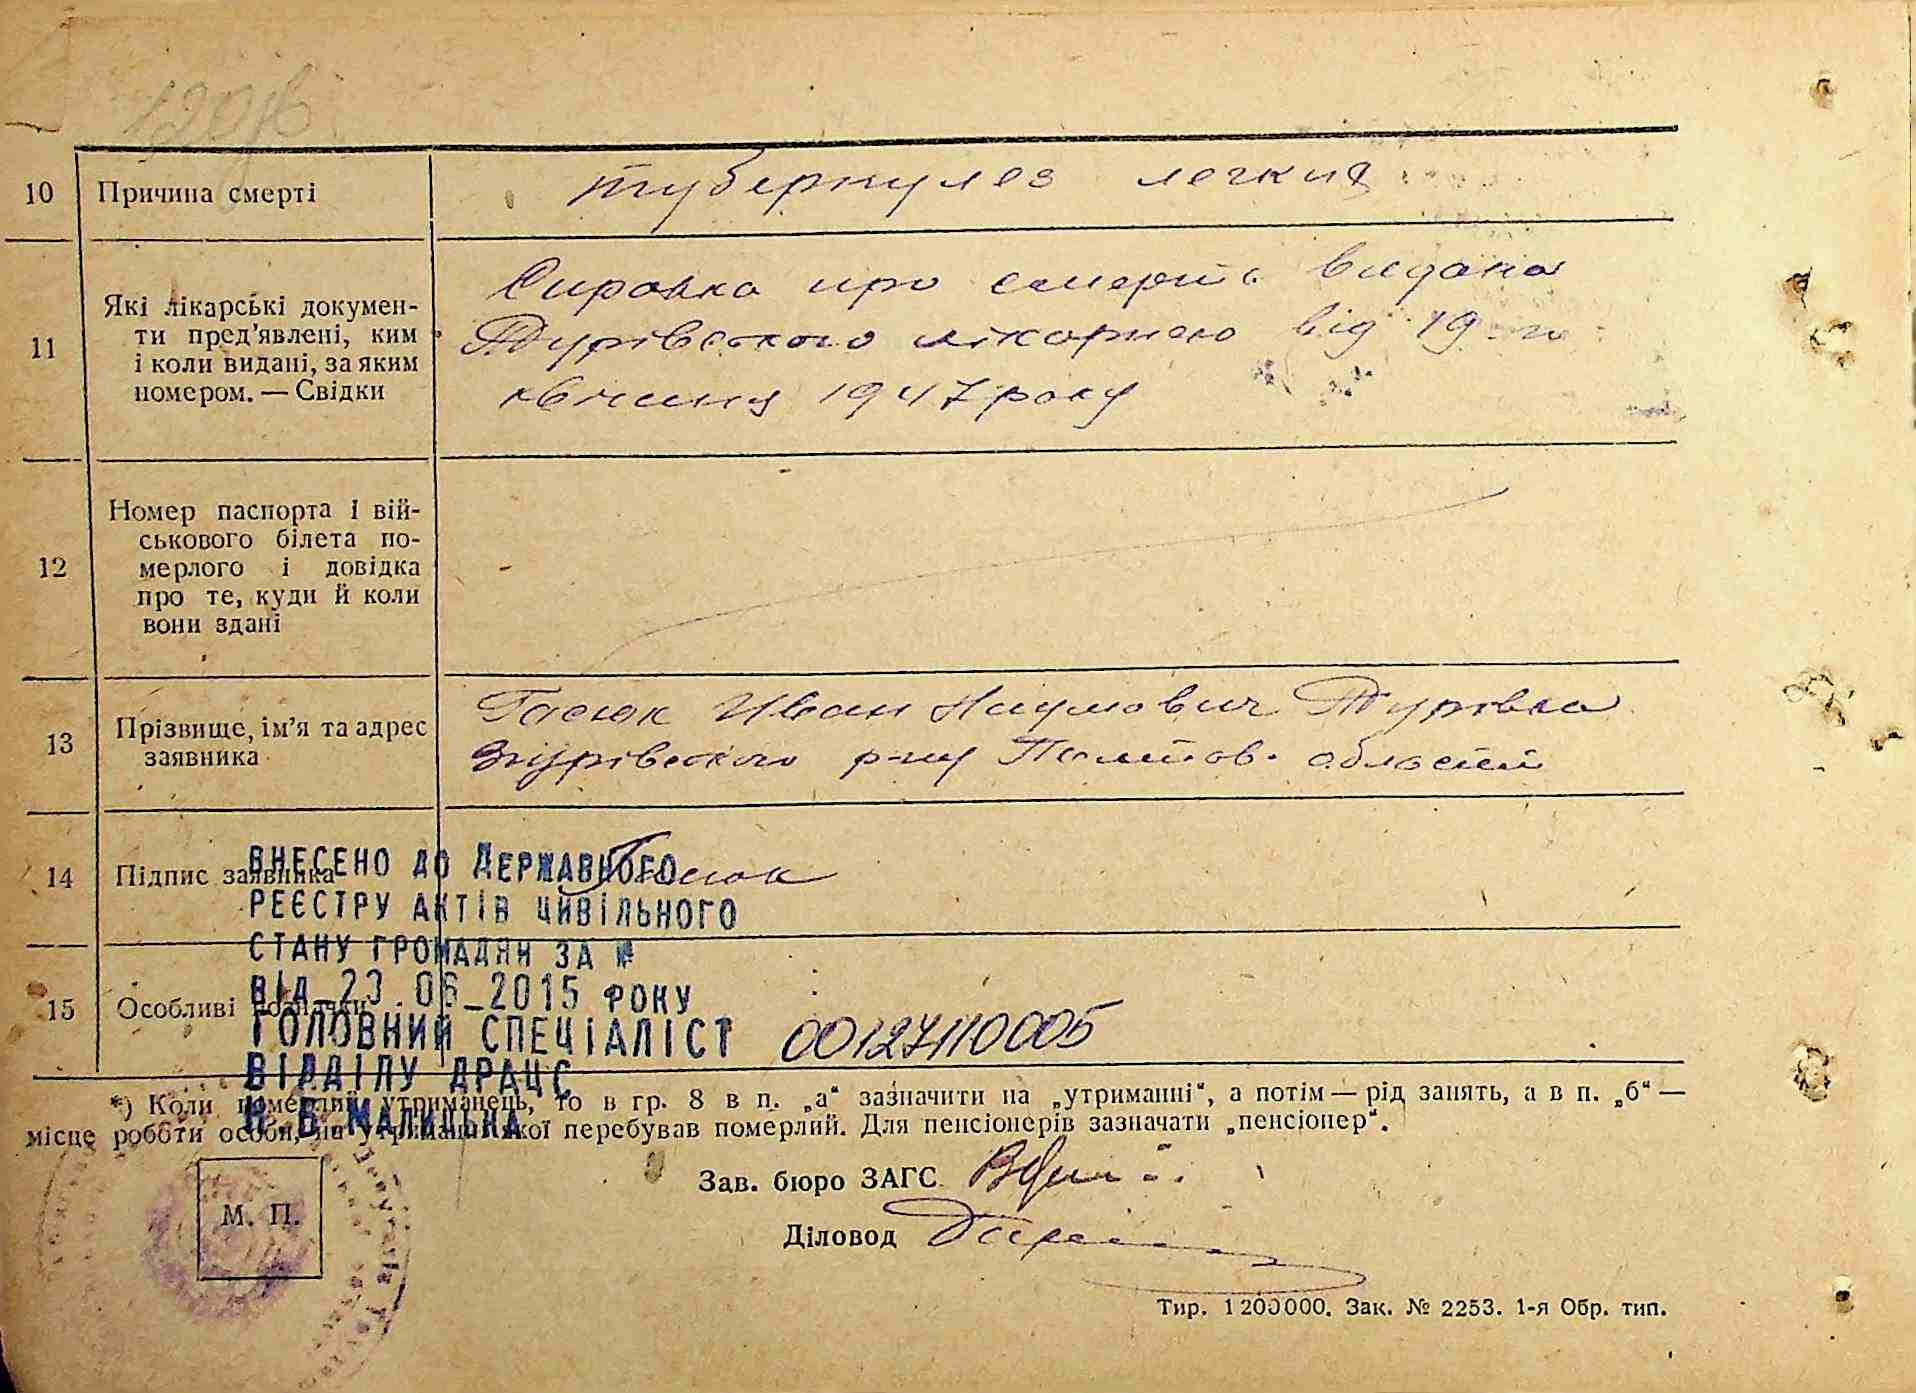 10 Причина смерті туберкулез легких
11 Які лікарські докумен-
ти пред'явлені, ким
і коли видані, за яким
номером. — Свідки
Справка про смерть видана
Турівского лікарнею від 19-го
квітня 1947 року
12 Номер паспорта і вій-
ськового білета по-
мерлого і довідка
про те, куди й коли
вони здані
13 Прізвище, ім'я та адрес
заявника
Гасюк Иван Наумович Турівка
Згурівского р-ну Полтов. області
14 Підпис заявника Гасюк
15 Особливі
ВНЕСЕНО ДО ДЕРЖАВНОГО
РЕЄСТРУ АКТІВ ЦИВІЛЬНОГО
СТАНУ ГРОМАДЯН ЗА №
ВІД 23.06_2015 РОКУ
ГОЛОВНИЙ СПЕЦІАЛІСТ 00127110005
ВІДДІЛУ ДРАЦС
МАЛИЦЬКА
*) Коли померлий утриманець, то в гр. 8 в п. „а“ зазначити на „утриманні“, а потім — рід занять, а в п. „б“ —
місце роботи особи, на утриманні якої перебував померлий. Для пенсіонерів зазначати „пенсіонер“.
Зав. бюро ЗАГС
М. П.
Діловод
Тир. 1200000. Зак. № 2253. 1-я Обр. тип.